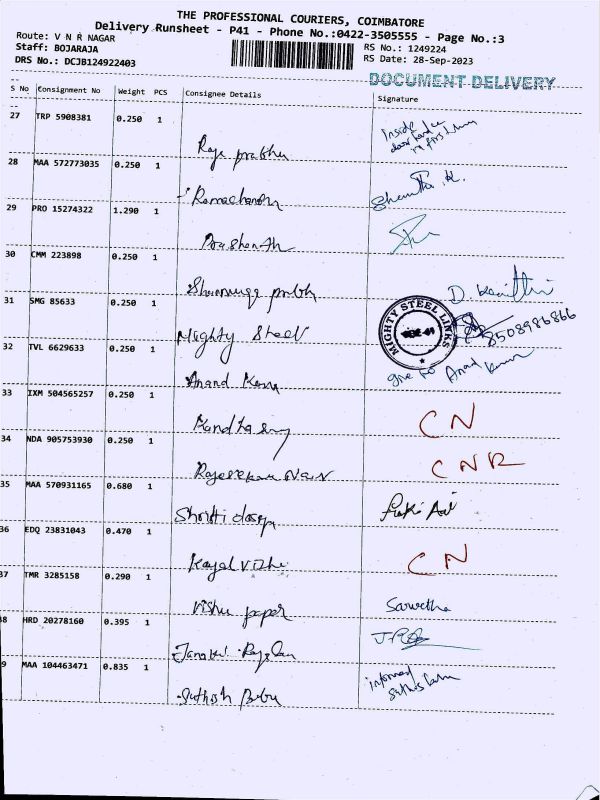 THE PROFESSIONAL COURIERS, COIMBATORE
Delivery Runsheet - P41 - Phone No.:0422-3505555 - Page No.:3
Route: V N R NAGAR
Staff: BOJARAJA
DRS No.: DCJB124922403
RS No.: 1249224
RS Date: 28-Sep-2023
DOCUMENT DELIVERY
S No Consignment No Weight PCS Consignee Details Signature
27 TRP 5908381 0.250 1
Raja prabhu
Inside
28 MAA 572773035 0.250 1
29 PRO 15274322 1.290 1
Prashanth
30 CMM 223898 0.250 1
31 SMG 85633 0.250 1
Mighty Steel
MIGHTY STEEL LINKS
8508986866
32 TVL 6629633 0.250 1
Anand Kumar
give to Anand Kumar
33 IXM 504565257 0.250 1
CN
34 NDA 905753930 0.250 1
CNR
35 MAA 570931165 0.680 1
36 EDQ 23831043 0.470 1
CN
37 TMR 3285158 0.290 1
Vishu paper
38 HRD 20278160 0.395 1
39 MAA 104463471 0.835 1
Sathish Babu
informed